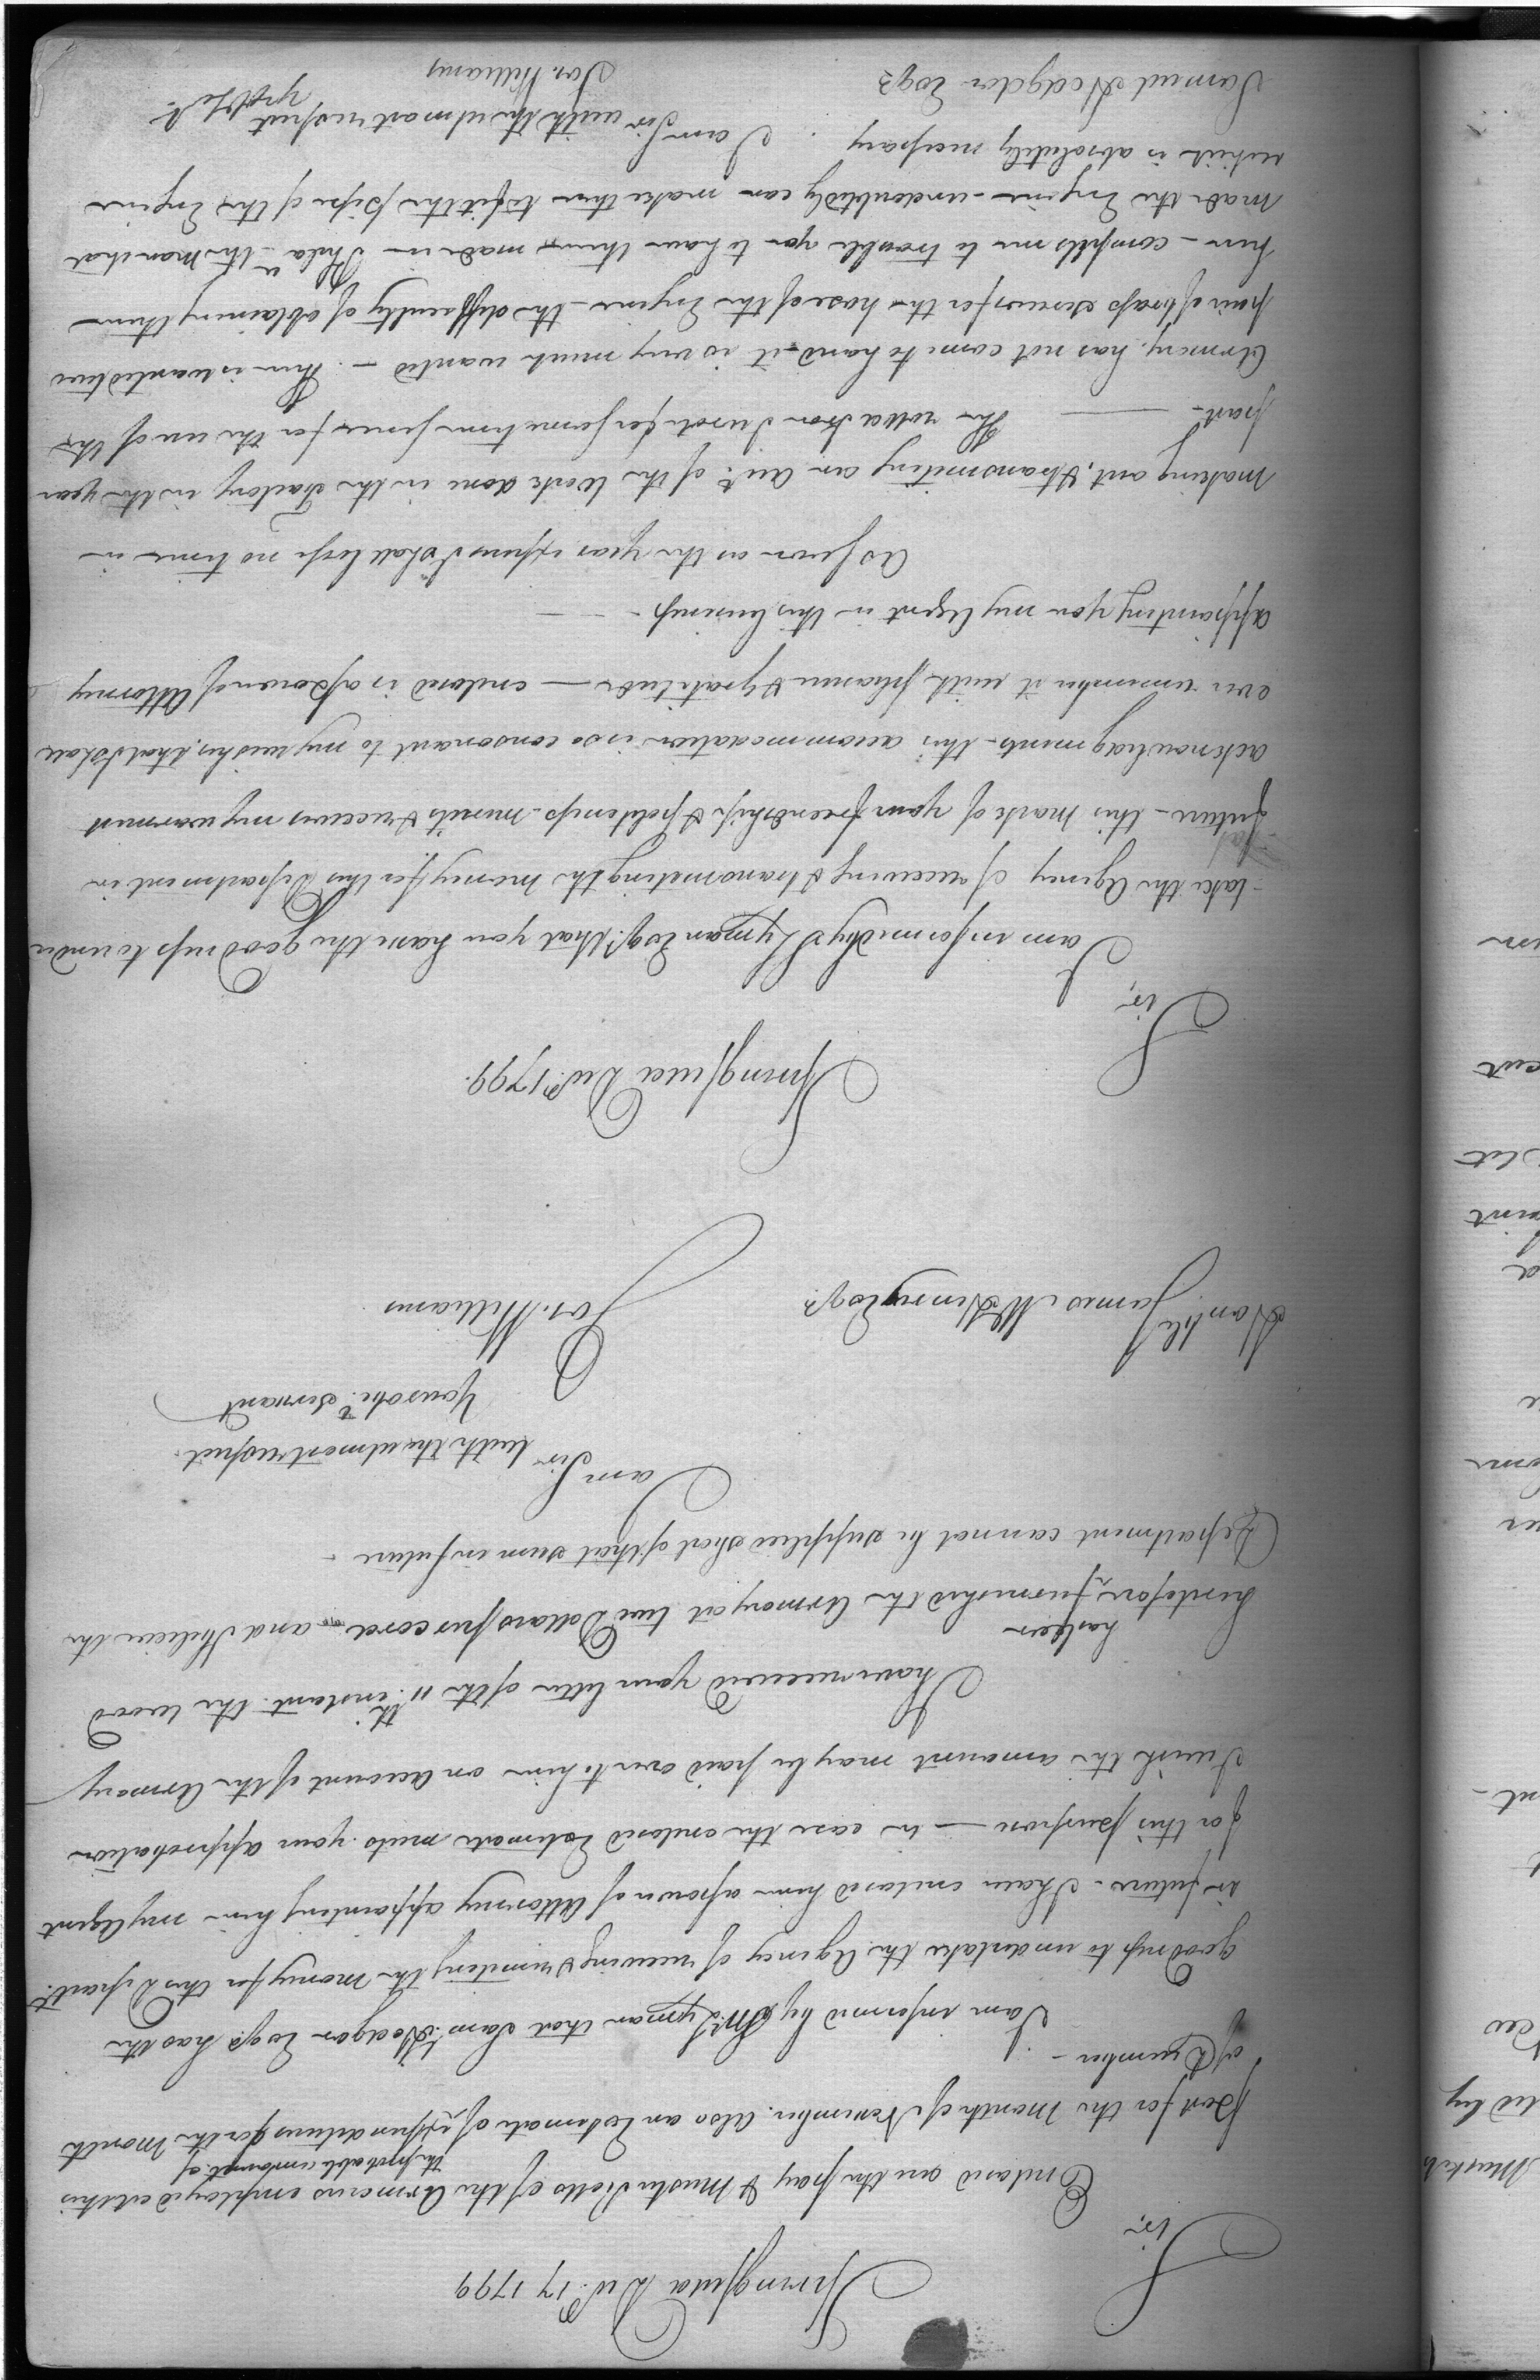 Springfield Decr. 17 1799
Sir,
Enclosed are the pay & Muster Rolls of the Armorers employed at this
post for the Month of November. Also an Estimate of the probable amount of expenditures for the Month
of December –
I am informed by Mr. Lyman that Saml. Hodgdon Esqr. has the
goodness to undertake the Agency of receiving & remitting the money for this Depart.
in future – I have enclosed him a power of Attorney appointing him my Agent
for this purpose — in case the enclosed Estimate meets your approbation
I wish the amount may be paid over to him on Account of the Armory
I have received your letter of the 11th. instant. the wood
heretofore has been furnished the Armory at two Dollars per cord – and I believe the
Department cannot be supplied short of that sum in future –
I am Sir
with the utmost respect
Your obt. Servant
Jos. Williams
Honble. James McHenry Esqr.
Springfield Decr. 1799.
Sir,
I am informed by Lyman Esqr. that you have the goodness to under
-take the Agency of receiving & transmitting the money for this Department in
future – this mark of your friendship & politeness merits & receives my warmest
acknowledgments – this accommodation is so consonant to my wishes, that I shall
ever remember it with pleasure & gratitude — enclosed is a power of Attorney
appointing you my Agent in this business – –
As soon as the year expires I shall loose no time in
making out, & transmitting an Acct. of the Work done in the Factory in the year
past – — The rolled Iron I wrote for some time since for the use of the
Armory, has not come to hand – it is very much wanted – There is wanted two
pair of brass screws for the hose of the Engine – the difficulty of obtaining them
here – compels me to trouble you to have them made in Phila. – the Man that
made the Engine – undoubtedly can make them to fit the pipe of the Engine
which is absolutely necessary
I am Sir
with the utmost respect
Yr. obt. St.
Jos. Williams
Samuel Hodgdon Esqr.